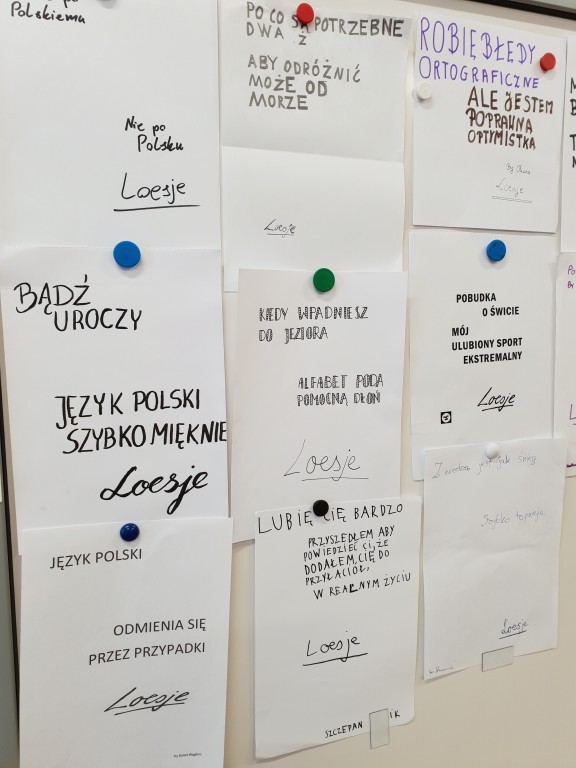 Nie po
Polskiemu
Nie po
Polsku
Loesje
PO CO SĄ POTRZEBNE
DWA Ż
ABY ODRÓŻNIĆ
MOŻE OD
MORZE
Loesje
ROBIĘ BŁĘDY
ORTOGRAFICZNE
ALE JESTEM
POPRAWNĄ
OPTYMISTKĄ
By
Loesje
BĄDŹ
UROCZY
JĘZYK POLSKI
SZYBKO MIĘKNIE
Loesje
KIEDY WPADNIESZ
DO JEZIORA
ALFABET PODA
POMOCNĄ DŁOŃ
Loesje
POBUDKA
O ŚWICIE
MÓJ
ULUBIONY SPORT
EKSTREMALNY
Loesje
JĘZYK POLSKI
ODMIENIA SIĘ
PRZEZ PRZYPADKI
Loesje
LUBIĘ CIĘ BARDZO
PRZYSZEDŁEM ABY
POWIEDZIEĆ CI, ŻE
DODAŁEM CIĘ DO
PRZYJACIÓŁ,
W REALNYM ŻYCIU
Loesje
SZCZEPAN
jest jak śnieg
Szybko topnieje
Loesje